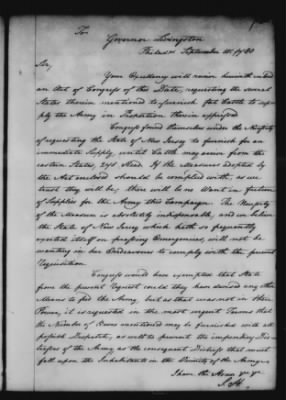 To
Governor Livingston
Philada September 15. 1780
Sir,
Your Excellency will receive herewith inclosed
an Act of Congress of this Date, requesting the several
States therein mentioned to furnish fat Cattle to sup-
ply the Army in Proportion therein expressed
Congress found themselves under the Necessity
of requesting the State of New Jersey to furnish for an
immediate Supply, until they may arrive from the
eastern States, Head. If the Measures adopted by
the Act enclosed should be complied with, as we
trust they will be, there will be no Want in future
of Supplies for the Army this Campaign. The Necessity
of the Measure is absolutely indispensable, and we believe
the State of New Jersey which hath so frequently
exerted itself on pressing Emergences, will not be
wanting in her Endeavours to comply with the present
Requisition.
Congress would have exempted that State
from the present Request could they have devised any other
Means to feed the Army, but as that was not in their
Power, it is requested in the most urgent Terms that
the Number of Beeves mentioned may be furnished with all
possible Dispatch, as well to prevent the impending Dis-
tresses of the Army, as the consequent Distress that must
fall upon the Inhabitants in the Vicinity of the Army
I have the Honor &c
S. H.